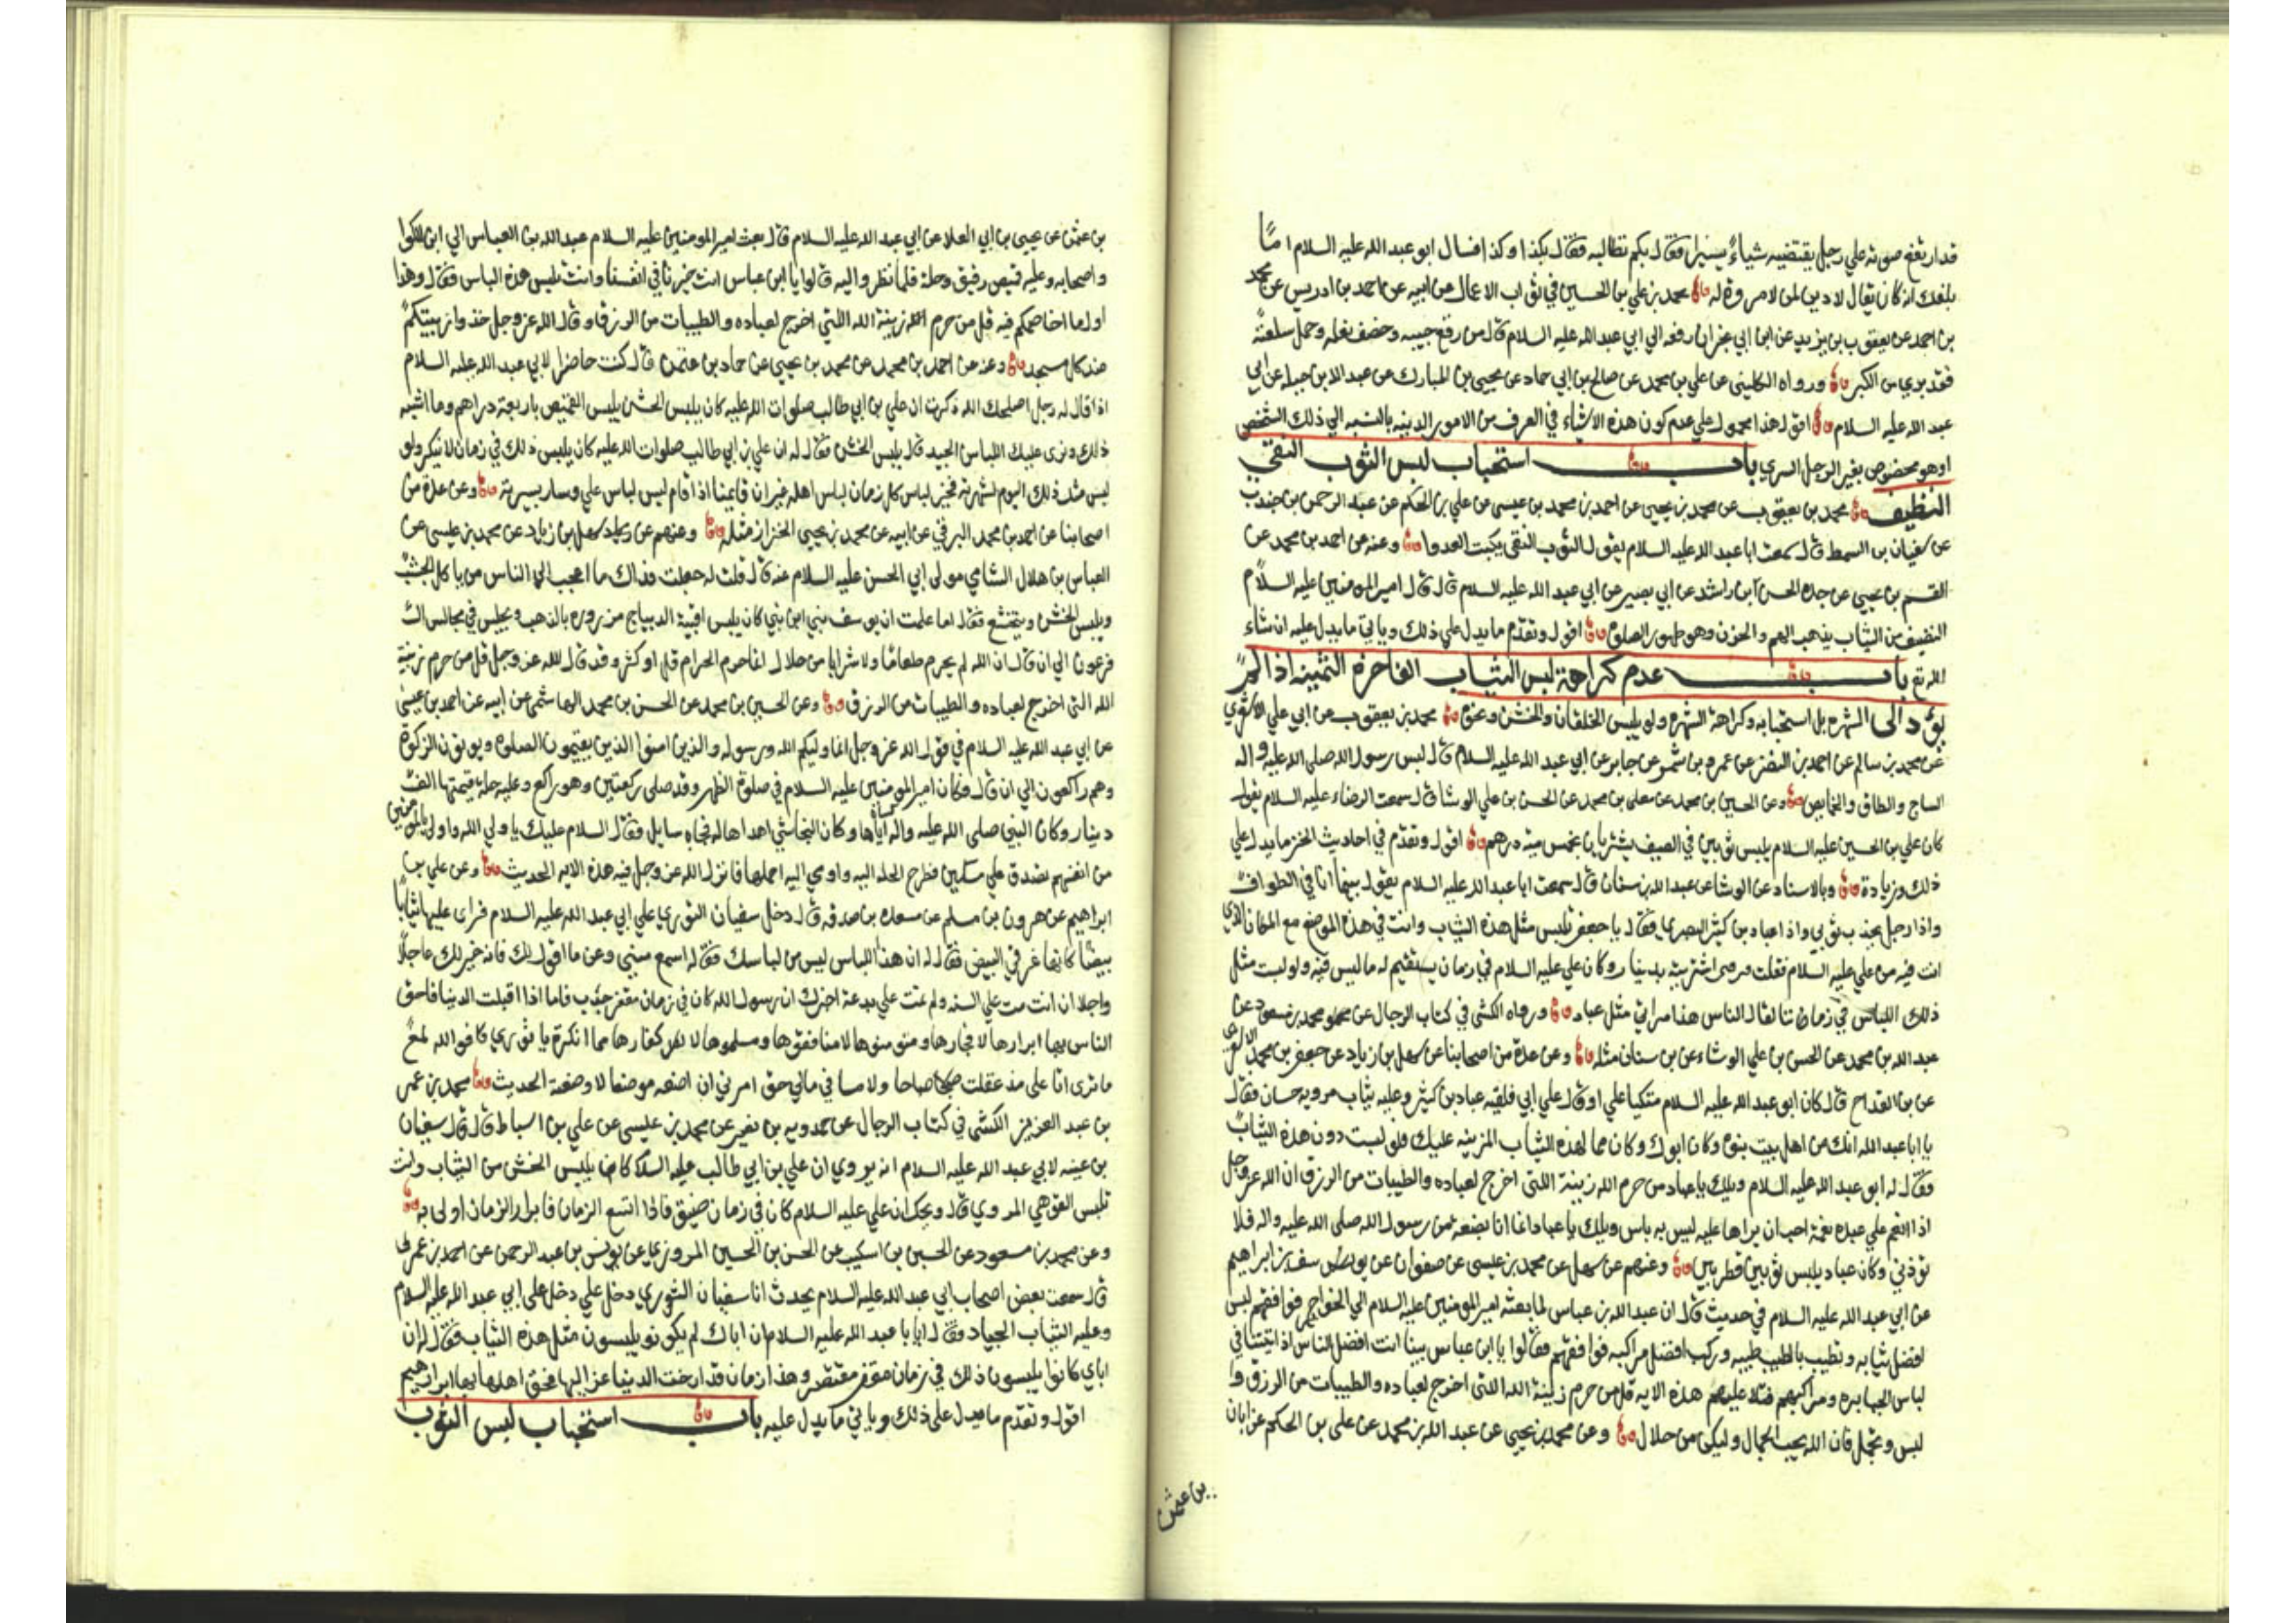 قدارتفع صوته علي رجل يقتضيه شياءً يسيرا فقال بكم تطالبه فقال بكذا وكذا فسال ابو عبد الله عليه السلام اما
بلغك انه كان يقال لا دين لمن لا مروة له محمد بن علي بن الحسين في ثواب الاعمال عن ابيه عن احمد بن ادريس عن محمد
بن احمد عن يعقوب بن يزيد عن ابن ابي رفعه الي ابي عبد الله عليه السلام قال من رقع جيبه وخصف نعله وحمل سلعته
فقد بري من الكبر ورواه الكليني عن علي بن محمد عن صالح بن ابي حماد عن يحيي بن المبارك عن عبد الله بن جبله عن ابي
عبد الله عليه السلام اقول هذا محمول علي عدم كون هذه الاشياء في العرف من الامور الدنيه بالنسبه الي ذلك الشخص
او هو مخصوص بغير الرجل السري باب استحباب لبس الثوب النقي
النظيف محمد بن يعقوب عن محمد بن يحيى عن احمد بن محمد بن عيسى عن علي بن الحكم عن عبد الرحمن بن جندب
عن سفيان بن السمط قال سمعت ابا عبد الله عليه السلام يقول الثوب النقي يكبت العدو وعنه عن احمد بن محمد عن
القسم بن يحيي عن جده الحسن ابن راشد عن ابي بصير عن ابي عبد الله عليه السلام قال قال امير المومنين عليه السلام
النظيف من الثياب يذهب الهم والحزن وهو طهور الصلوة اقول وتقدم ما يدل علي ذلك وياتي ما يدل عليه ان شاء
الله تع باب عدم كراهة لبس الثياب الفاخرة الثمينه اذا لم
يؤد الى الشهره بل استحبابه وكراهة الشهره ولو بلبس الخلقان والخشن ونحوه محمد بن يعقوب عن ابي علي الاشعري
عن محمد بن سالم عن احمد بن النضر عن عمرو بن شمر عن جابر عن ابي عبد الله عليه السلام قال لبس رسول الله صلى الله عليه واله
الساج والطاق والخمايص وعن الحسين بن محمد عن معلى بن محمد عن الحسن بن علي الوشا قال سمعت الرضاء عليه السلام يقول
كان علي بن الحسين عليه السلام يلبس ثوبين في الصيف يشتريان بخمس ميه درهم اقول وتقدم في احاديث الخز ما يدل علي
ذلك وزيادة وبالاسناد عن الوشا عن عبد الله بن سنان قال سمعت ابا عبد الله عليه السلام يقول بينما انا في الطواف
واذا رجل يجذب ثوبي واذا عباد بن كثير البصري فقال يا جعفر تلبس مثل هذه الثياب وانت في هذا الموضع مع المكان الذي
انت فيه من علي عليه السلام فقلت اشتريته بدينار وكان علي عليه السلام في زمان يستقيم له ما لبس فيه ولو لبست مثل
ذلك اللباس في زماننا لقال الناس هذا مراني مثل عباد ورواه الكشى في كتاب الرجال عن محمد بن مسعود عن
عبد الله بن محمد عن الحسن بن علي الوشاء عن بن سنان مثله وعن عدة من اصحابنا عن سهل بن زياد عن جعفر بن محمد الاشعري
عن بن القداح قال كان ابو عبد الله عليه السلام متكيا علي او قال علي ابي فلقيه عباد بن كثير وعليه ثياب مرويه حسان فقال
يا ابا عبد الله انك من اهل بيت نبوة وكان ابوك وكان فما لهذه الثياب المزينه عليك فلو لبست دون هذه الثياب
فقال له ابو عبد الله عليه السلام ويلك يا عباد من حرم الله زينة اللتى اخرج لعباده والطيبات من الرزق ان الله عز وجل
اذا انعم علي عبده نعمة احب ان يراها عليه ليس به باس ويلك يا عباد انما انا بضعه من رسول الله صلى الله عليه واله فلا
توذني وكان عباد يلبس ثوبين قطريين وعنهم عن سهل عن محمد بن عيسى عن صفوان عن يوسف بن ابراهيم
عن ابي عبد الله عليه السلام في حديث قال ان عبد الله بن عباس لما بعثه امير المومنين عليه السلام الي الخوارج فوافقهم لبس
افضل ثيابه وتطيب بالطيب طيبه وركب افضل مراكبه فوافقهم فقالوا يا ابن عباس بينا انت افضل الناس اذ اتيتنا في
لباس الجبابره ومراكبهم فتلا عليهم هذه الايه قل من حرم زينة الله اللتى اخرج لعباده والطيبات من الرزق وا
لبس وتجمل فان الله يحب الجمال وليكن من حلال وعن محمد بن يحيى عن عبد الله بن محمد عن علي بن الحكم عن ابان
بن عثمن
بن عثمن عن يحيى بن ابي العلا عن ابي عبد الله عليه السلام قال بعث امير المومنين عليه السلام عبد الله بن العباس الي ابن الكوا
واصحابه وعليه قميص رقيق وحلة فلما نظروا اليه قالوا يا ابن عباس انت خيرنا في انفسنا وانت تلبس هذه الباس فقال وهذا
اول ما اخاصمكم فيه قل من حرم الله زينة الله اللتي اخرج لعباده والطيبات من الرزق وقال الله عز وجل خذوا زينتكم
عند كل مسجد وعنه عن احمد بن محمد عن محمد بن يحيي عن حماد بن عثمن قال كنت حاضرا لابي عبد الله عليه السلام
اذ قال له رجل اصلحك الله ذكرت ان علي بن ابي طالب صلوات الله عليه كان يلبس الخشن يلبس القميص باربعة دراهم وما اشبه
ذلك ونرى عليك اللباس الجيد قال فقال له ان علي بن ابي طالب صلوات الله عليه كان يلبس ذلك في زمان لا ينكر ولو
لبس مثل ذلك اليوم لشهر به فخير لباس كل زمان لباس اهله غير ان قايمنا اذا قام لبس لباس علي وسار بسيرته وعن عدة من
اصحابنا عن احمد بن محمد البرقي عن ابيه عن محمد بن يحيي الخزاز مثله وعنهم عن سهل بن زياد عن محمد بن عيسى عن
العباس بن هلال الشامي مولى ابي الحسن عليه السلام عنه قال قلت له جعلت فداك ما اعجب الي الناس من ياكل الجشب
ويلبس الخشن ويتخشع فقال اما علمت ان يوسف نبي ابن نبي كان يلبس اقبية الديباج مزروره بالذهب ويجلس في مجالس ال
فرعون الي ان قال ان الله لم يحرم طعاما ولا شرابا من حلال انما حرم الحرام قل او كثر وقد قال الله عز وجل قل من حرم زينة
الله التى اخرج لعباده والطيبات من الرزق وعن الحسين بن محمد عن الحسن بن محمد الهاشمي عن ابيه عن احمد بن عيسى
عن ابي عبد الله عليه السلام في قول الله عز وجل انما وليكم الله ورسوله والذين امنوا الذين يقيمون الصلوة ويوتون الزكوة
وهم راكعون الي ان قال وكان امير المومنين عليه السلام في صلوة الظهر وقد صلى ركعتين وهو راكع وعليه حله قيمتها الف
دينار وكان النبي صلى الله عليه واله كساه اياها وكان النجاشي اهداها له فجاه سايل فقال السلام عليك يا ولي الله واولى بالمومنين
من انفسهم تصدق علي مسكين فطرح الحله اليه واومي اليه احملها فانزل الله عز وجل فيه هذه الايه الحديث وعن علي بن
ابراهيم عن هرون بن مسلم عن مسعده بن صدقه قال دخل سفيان الثوري علي ابي عبد الله عليه السلام فراى عليه ثيابا
بيضا كانها غرقي البيض فقال له ان هذا اللباس ليس من لباسك فقال اسمع مني وعن ما اقول لك فانه خير لك عاجلا
واجلا ان انت مت علي السنه ولم تمت علي بدعة اخبرك ان رسول الله كان في زمان مقفر جدب فاما اذا اقبلت الدنيا فاحق
الناس بها ابرارها لا فجارها ومومنوها لا منافقوها ومسلموها لا كفارها فما انكرة يا ثوري فوالله لمع
ما ترى اتا على مذ عقلت صباحا ولا مسا في مالي حق امرني ان اضعه موضعا لا وضعة الحديث محمد بن عمر
بن عبد العزيز الكشي في كتاب الرجال عن حمدويه بن نصير عن محمد بن عليسى عن علي بن اسباط قال قال سفيان
بن عينه لابي عبد الله عليه السلام انه يروي ان علي بن ابي طالب عليه السلام كان يلبس الخشن من الثياب وانت
تلبس القوهي المروي قال ويحك ان علي عليه السلام كان في زمان ضيق فاذا اتسع الزمان فابرار الزمان اولى به
وعن محمد بن مسعود عن الحسين بن اسكيب عن الحسن بن الحسين المروزي عن يونس بن عبد الرحمن عن احمد بن عمر
قال سمعت بعض اصحاب ابي عبد الله عليه السلام يحدث انا سفيان الثوري دخل علي دخل على ابي عبد الله عليه السلام
وعليه الثياب الجياد فقال يا ابا عبد الله عليه السلام ان اباك لم يكونو يلبسون مثل هذه الثياب فقال له ان
اباي كانوا يلبسون ذلك في زمان مقفر مقتر وهذا زمان قد ارخت الدنيا عزاليها فحق اهلها بها ابرارهم
اقول وتقدم ما يدل على ذلك وياتي ما يدل عليه باب استحباب لبس الثوب